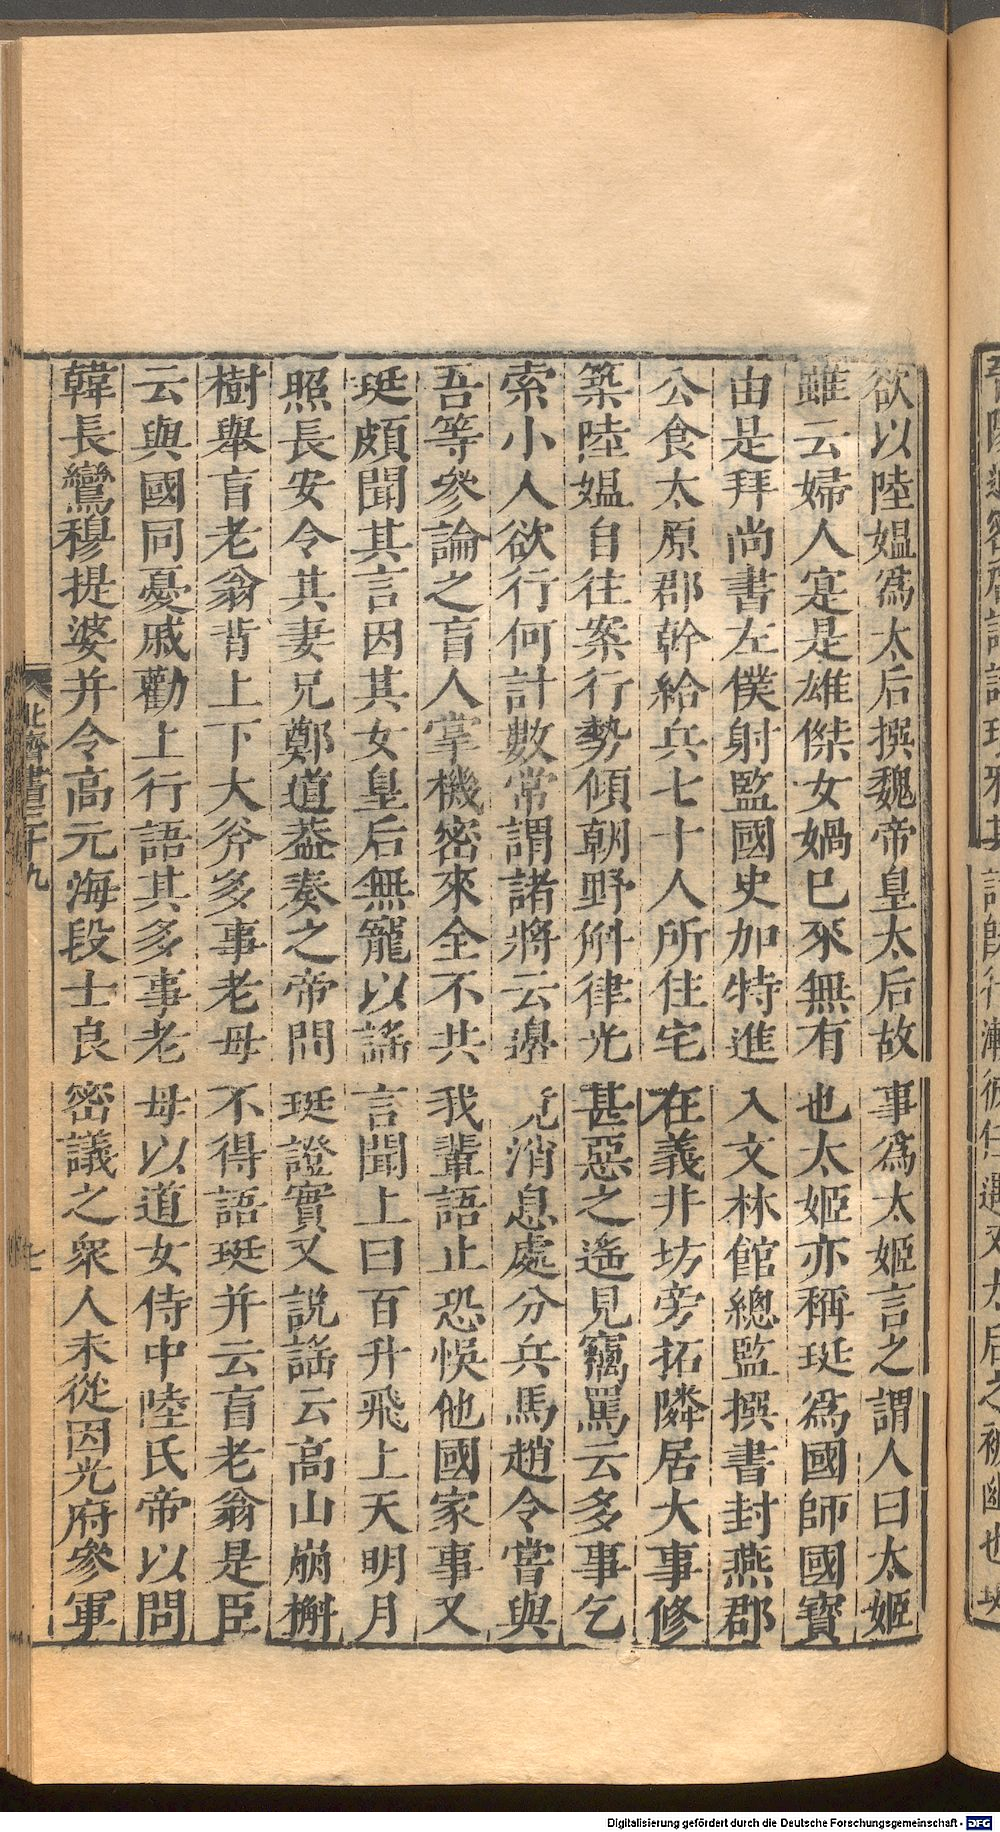 欲以陸媪為太后撰魏帝皇太后故事為太姬言之謂人曰太姬
雖云婦人寔是雄傑女媧巳來無有也太姬亦稱珽為國師國寳
由是拜尚書左僕射監國史加特進入文林館總監撰書封燕郡
公食太原郡幹給兵七十人所住宅在義井坊旁拓隣居大事修
築陸媪自往案行勢傾朝野斛律光甚惡之遙見竊罵云多事乞
索小人欲行何計數常謂諸將云邊兌消息處分兵馬趙令嘗與
吾等參論之盲人掌機密來全不共我輩語止恐悞他國家事又
珽頗聞其言因其女皇后無寵以謡言聞上曰百升飛上天明月
照長安令其妻兄鄭道葢奏之帝問珽證實又説謡云高山崩槲
樹舉盲老翁背上下大斧多事老母不得語珽并云盲老翁是臣
云與國同憂戚勸上行語其多事老母以道女侍中陸氏帝以問
韓長鸞穆提婆并令高元海段士良密議之衆人未從因光府參軍
北齊書三十九
七
Digitalisierung gefördert durch die Deutsche Forschungsgemeinschaft - DFG